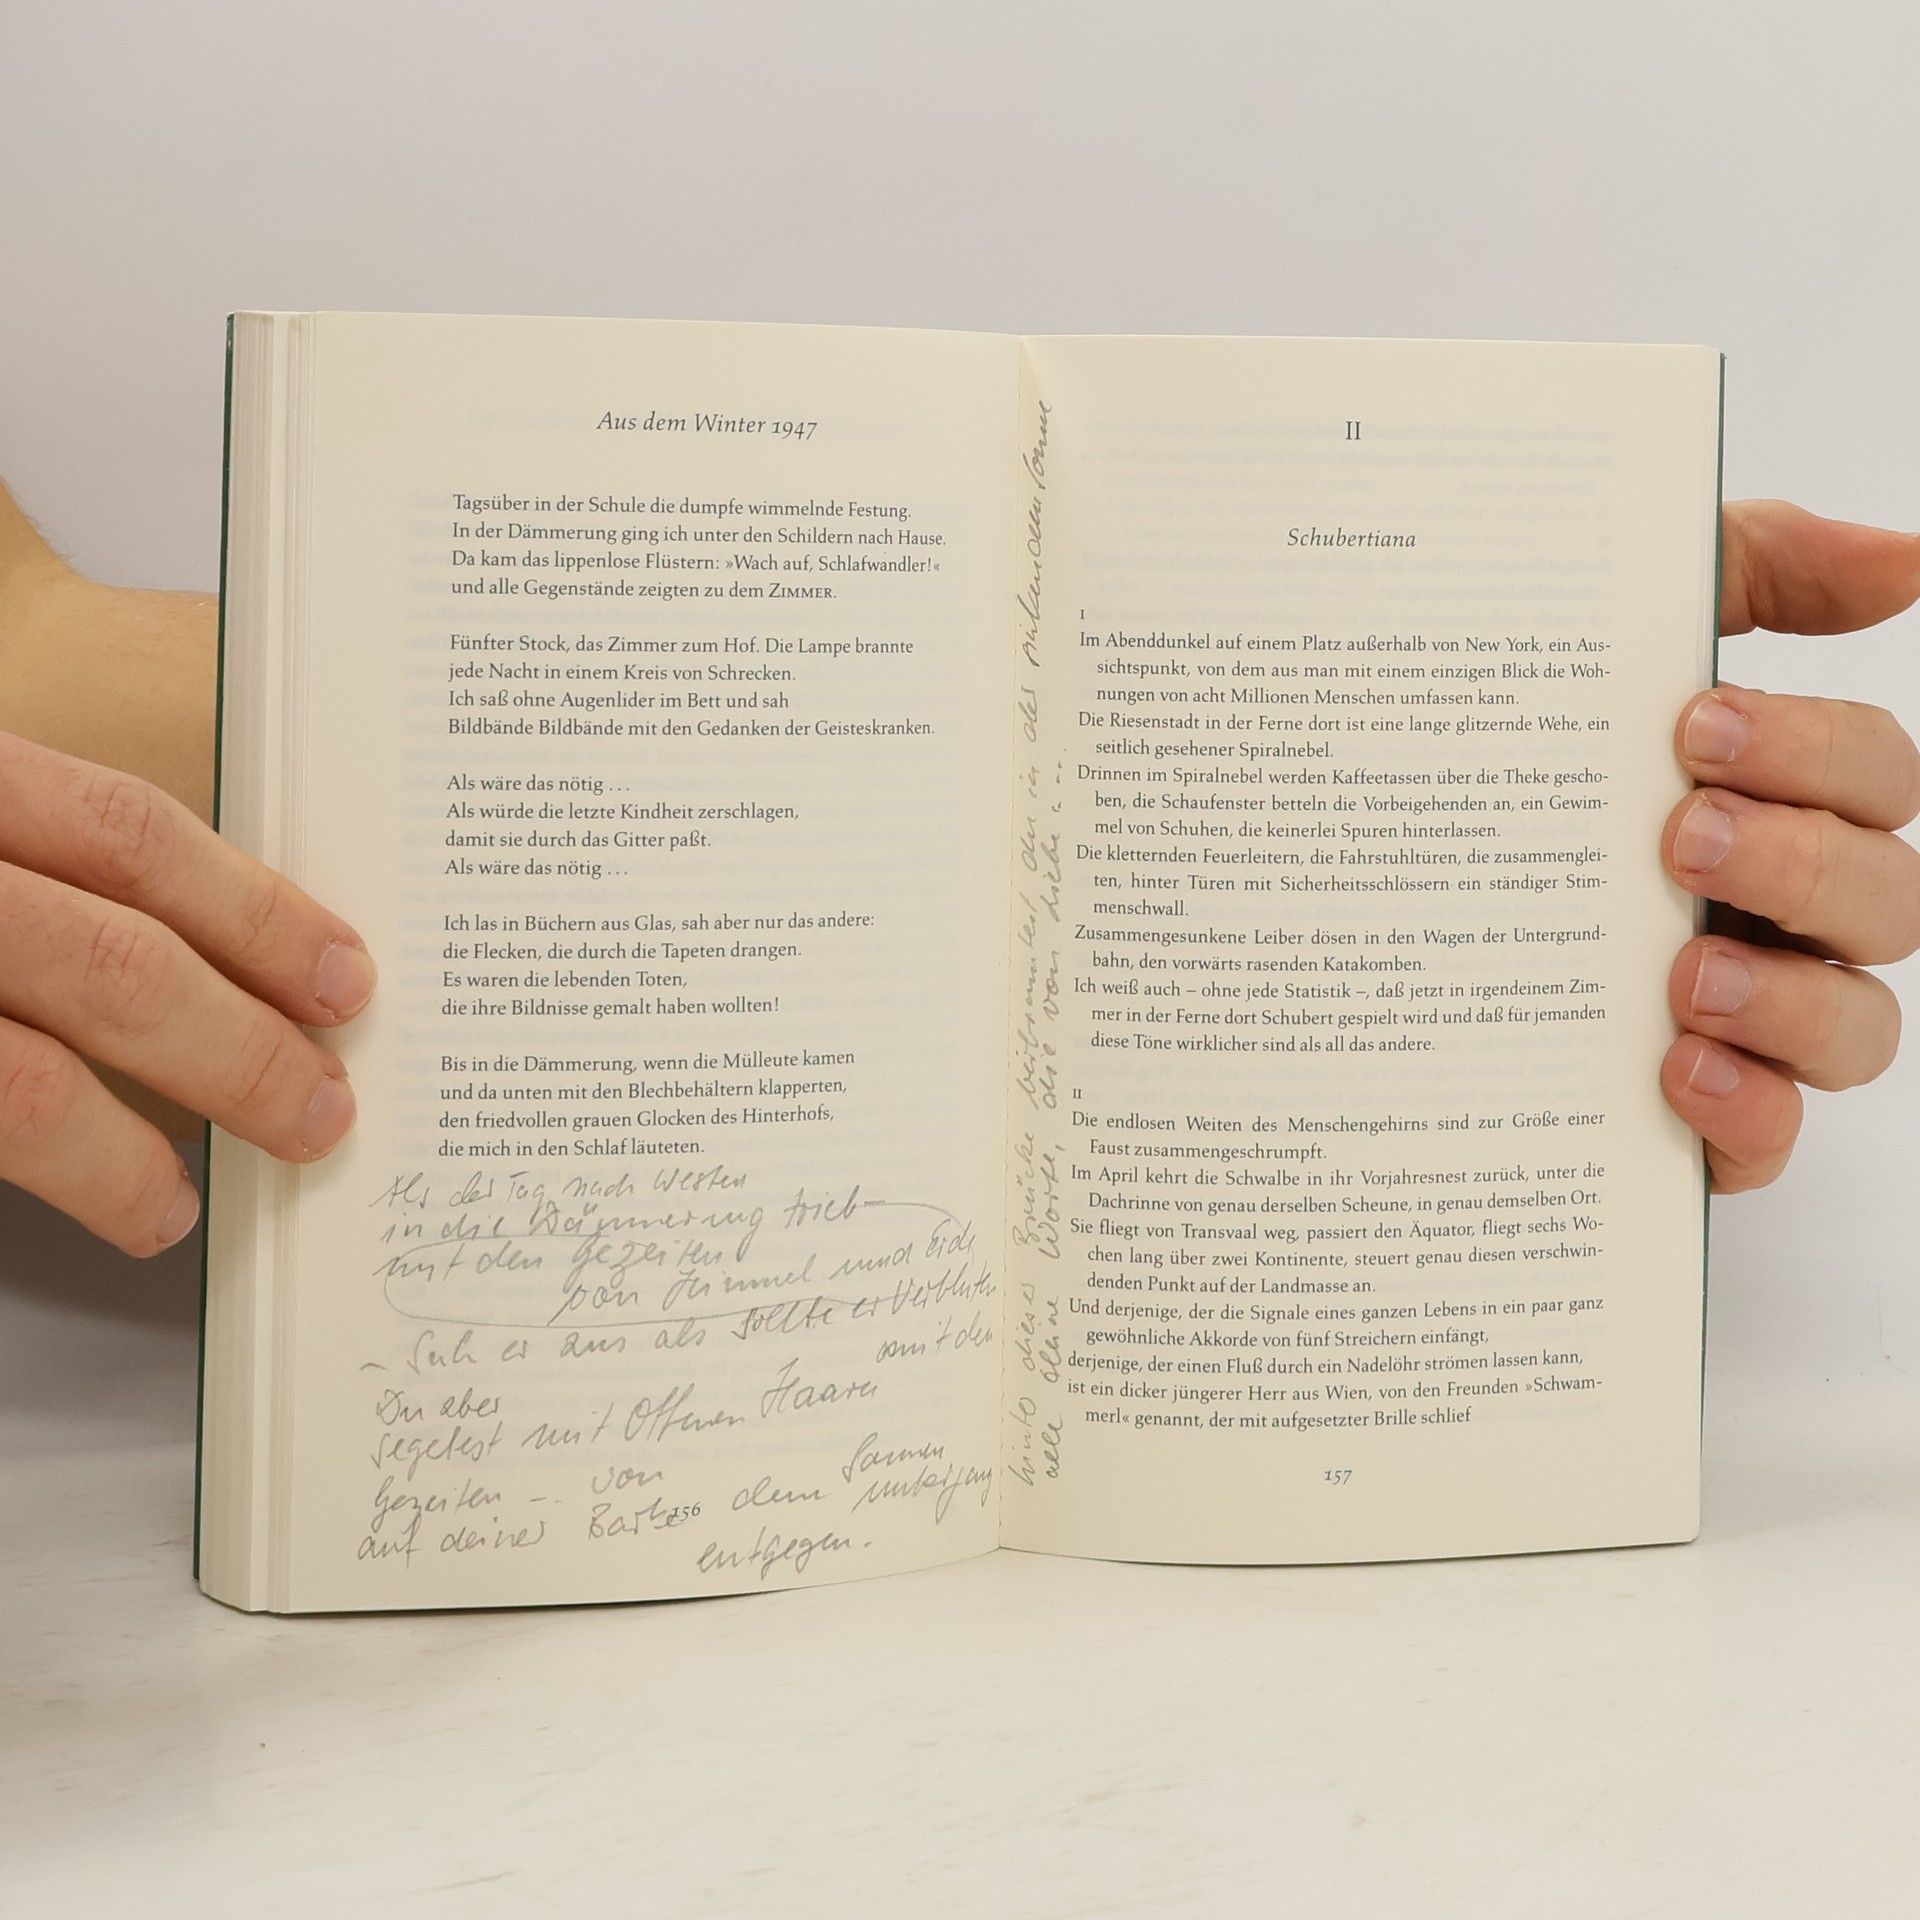 Aus dem Winter 1947
Tagsüber in der Schule die dumpfe wimmelnde Festung.
In der Dämmerung ging ich unter den Schildern nach Hause.
Da kam das lippenlose Flüstern: »Wach auf, Schlafwandler!«
und alle Gegenstände zeigten zu dem ZIMMER.
Fünfter Stock, das Zimmer zum Hof. Die Lampe brannte
jede Nacht in einem Kreis von Schrecken.
Ich saß ohne Augenlider im Bett und sah
Bildbände Bildbände mit den Gedanken der Geisteskranken.
Als wäre das nötig ...
Als würde die letzte Kindheit zerschlagen,
damit sie durch das Gitter paßt.
Als wäre das nötig ...
Ich las in Büchern aus Glas, sah aber nur das andere:
die Flecken, die durch die Tapeten drangen.
Es waren die lebenden Toten,
die ihre Bildnisse gemalt haben wollten!
Bis in die Dämmerung, wenn die Mülleute kamen
und da unten mit den Blechbehältern klapperten,
den friedvollen grauen Glocken des Hinterhofs,
die mich in den Schlaf läuteten.
Als der Tag nach Westen
in die Dämmerung trieb –
mit den Gezeiten
von Himmel und Erde
– Sah er aus als sollte er verbluten
Du aber mit den
segelest mit offenen Haaren
Gezeiten – von Sonnen
auf deiner Barke dem untergang
entgegen.
156
hinter dieser Brücke verbranntest du in der sinkenden Sonne
alle ohne Worte, die von Liebe ...
II
Schubertiana
I
Im Abenddunkel auf einem Platz außerhalb von New York, ein Aus-
sichtspunkt, von dem aus man mit einem einzigen Blick die Woh-
nungen von acht Millionen Menschen umfassen kann.
Die Riesenstadt in der Ferne dort ist eine lange glitzernde Wehe, ein
seitlich gesehener Spiralnebel.
Drinnen im Spiralnebel werden Kaffeetassen über die Theke gescho-
ben, die Schaufenster betteln die Vorbeigehenden an, ein Gewim-
mel von Schuhen, die keinerlei Spuren hinterlassen.
Die kletternden Feuerleitern, die Fahrstuhltüren, die zusammenglei-
ten, hinter Türen mit Sicherheitsschlössern ein ständiger Stim-
menschwall.
Zusammengesunkene Leiber dösen in den Wagen der Untergrund-
bahn, den vorwärts rasenden Katakomben.
Ich weiß auch – ohne jede Statistik –, daß jetzt in irgendeinem Zim-
mer in der Ferne dort Schubert gespielt wird und daß für jemanden
diese Töne wirklicher sind als all das andere.
II
Die endlosen Weiten des Menschengehirns sind zur Größe einer
Faust zusammengeschrumpft.
Im April kehrt die Schwalbe in ihr Vorjahresnest zurück, unter die
Dachrinne von genau derselben Scheune, in genau demselben Ort.
Sie fliegt von Transvaal weg, passiert den Äquator, fliegt sechs Wo-
chen lang über zwei Kontinente, steuert genau diesen verschwin-
denden Punkt auf der Landmasse an.
Und derjenige, der die Signale eines ganzen Lebens in ein paar ganz
gewöhnliche Akkorde von fünf Streichern einfängt,
derjenige, der einen Fluß durch ein Nadelöhr strömen lassen kann,
ist ein dicker jüngerer Herr aus Wien, von den Freunden »Schwam-
merl« genannt, der mit aufgesetzter Brille schlief
157